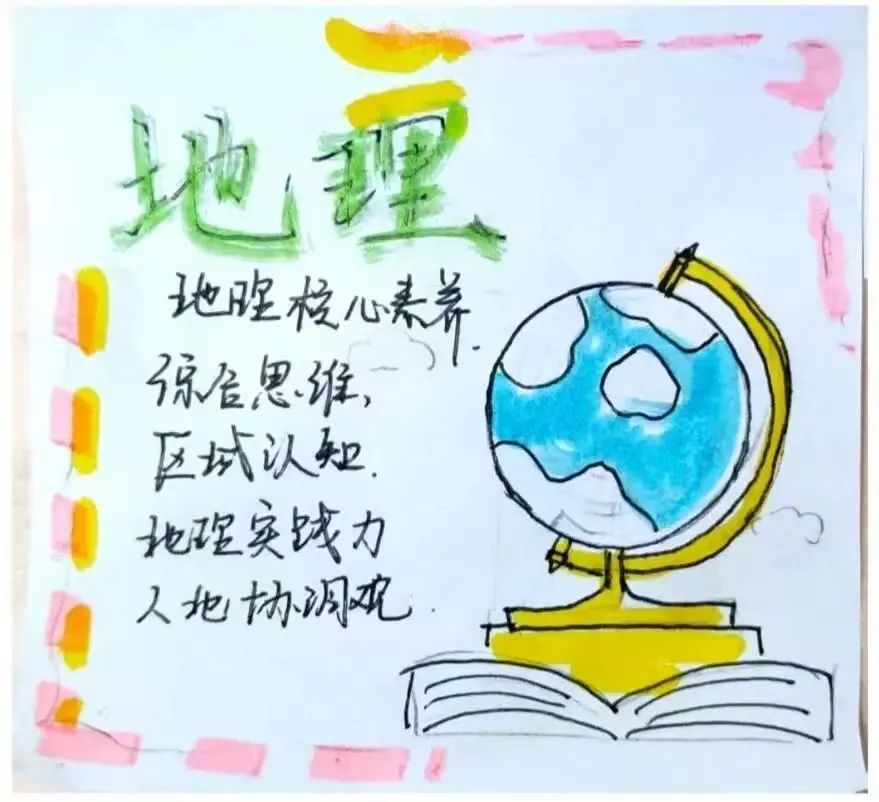 地理
地理核心素养.
综合思维,
区域认知.
地理实践力
人地协调观.